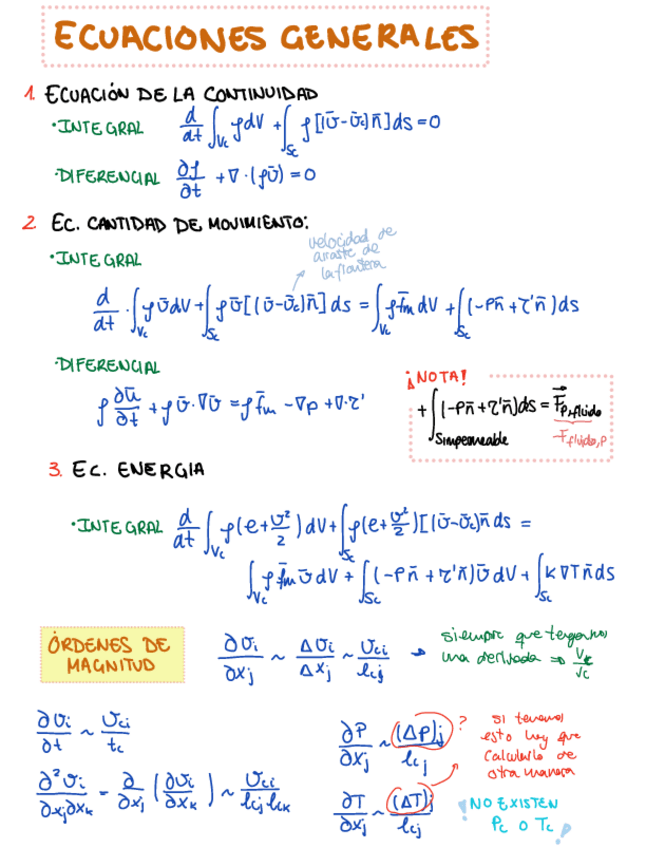 ECUACIONES GENERALES
1. ECUACIÓN DE LA CONTINUIDAD
·INTEGRAL d/dt ∫_Vc ρdV + ∫_Sc ρ[(v̄-v̄c)n̄]ds=0
·DIFERENCIAL ∂ρ/∂t + ∇·(ρv̄)=0
2. EC. CANTIDAD DE MOVIMIENTO:
velocidad de
·INTEGRAL
la frontera
d/dt · ∫_Vc ρv̄dV + ∫_Sc ρv̄[(v̄-v̄c)n̄]ds = ∫_Vc ρf̄m dV + ∫_Sc (-Pn̄+τ'n̄)ds
·DIFERENCIAL
ρ ∂ū/∂t + ρv̄·∇v̄ = ρf̄m - ∇p + ∇·τ'
¡NOTA!
+∫_Simpermeable (-Pn̄+τ'n̄)ds = F⃗_p,fluido
-F_fluido,p
3. EC. ENERGIA
·INTEGRAL d/dt ∫_Vc ρ(e+v²/2)dV + ∫_Sc ρ(e+v²/2)[(v̄-v̄c)n̄ds =
∫_Vc ρf̄m v̄dV + ∫_Sc (-Pn̄+τ'n̄)v̄dV + ∫_Sc K∇Tn̄ds
ÓRDENES DE
MAGNITUD
∂vi/∂xj ~ Δvi/Δxj ~ vci/lcj →
siempre que tengamos
una derivada ⇒
∂vi/∂t ~ vci/tc
∂²vi/∂xj∂xk = ∂/∂xj (∂vi/∂xk) ~ vci/lcj lck
∂P/∂xj ~ (ΔP)j/lcj ?
si tenemos
esto hay que
calcularlo de
otra manera
∂T/∂xj ~ (ΔT)j/lcj
¡NO EXISTEN
Pc O Tc!